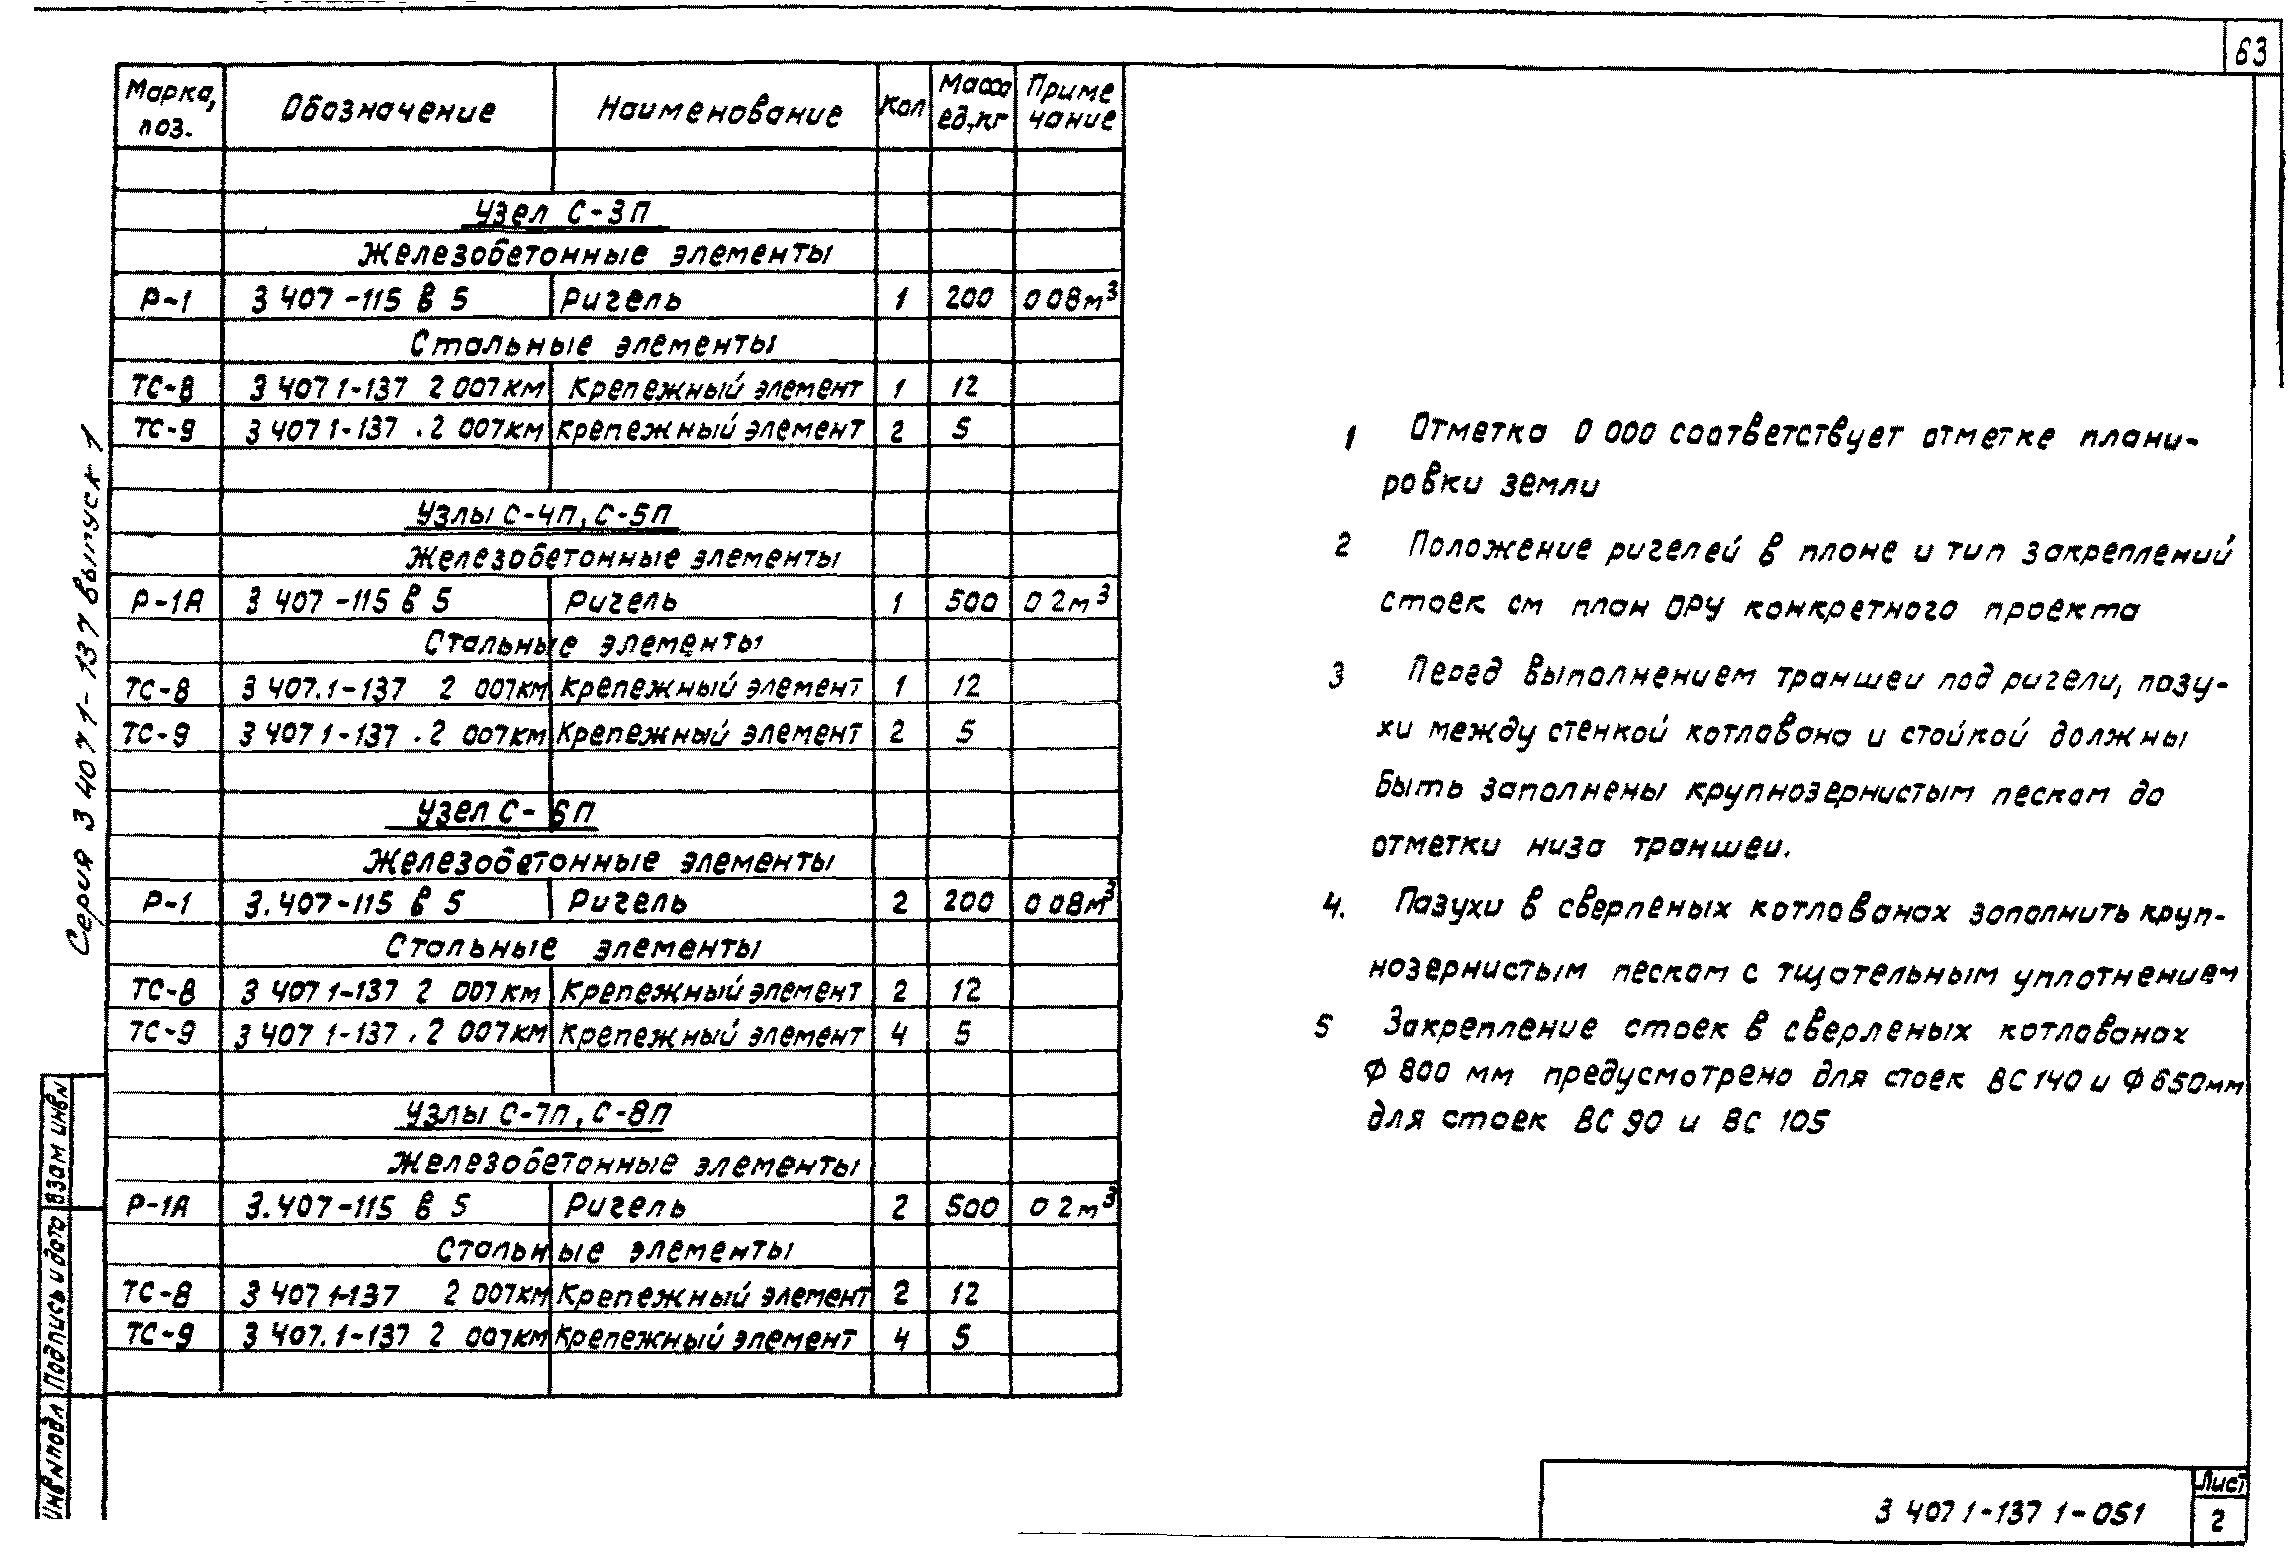 63
Марка, поз. Обозначение Наименование Кол Масса ед,кг Приме чание
Узел С-3П
Железобетонные элементы
Р-1 3 407-115 в 5 Ригель 1 200 0 08м³
Стальные элементы
ТС-8 3 407 1-137 2 007КМ Крепежный элемент 1 12
ТС-9 3 407 1-137 .2 007КМ Крепежный элемент 2 5
Узлы С-4П, С-5П
Железобетонные элементы
Р-1А 3 407-115 в 5 Ригель 1 500 0 2м³
Стальные элементы
ТС-8 3 407.1-137 2 007КМ Крепежный элемент 1 12
ТС-9 3 407 1-137 .2 007КМ Крепежный элемент 2 5
Узел С-6П
Железобетонные элементы
Р-1 3.407-115 в 5 Ригель 2 200 0 08м³
Стальные элементы
ТС-8 3 407 1-137 2 007КМ Крепежный элемент 2 12
ТС-9 3 407 1-137 .2 007КМ Крепежный элемент 4 5
Узлы С-7П, С-8П
Железобетонные элементы
Р-1А 3.407-115 в 5 Ригель 2 500 0 2м³
Стальные элементы
ТС-8 3 407 1-137 2 007КМ Крепежный элемент 2 12
ТС-9 3 407.1-137 2 007КМ Крепежный элемент 4 5
1 Отметка 0 000 соответствует отметке плани-
ровки земли
2 Положение ригелей в плане и тип закреплений
стоек см план ОРУ конкретного проекта
3 Перед выполнением траншеи под ригели, пазу-
хи между стенкой котлована и стойкой должны
быть заполнены крупнозернистым песком до
отметки низа траншеи.
4. Пазухи в сверленых котлованах заполнить круп-
нозернистым песком с тщательным уплотнением
5 Закрепление стоек в сверленых котлованах
Ф 800 мм предусмотрено для стоек ВС 140 и Ф 650мм
для стоек ВС 90 и ВС 105
Серия 3 407 1-137 выпуск 1
Взам инв N
Подпись и дата
Инв N подл
3 407 1-137 1-051
Лист
2